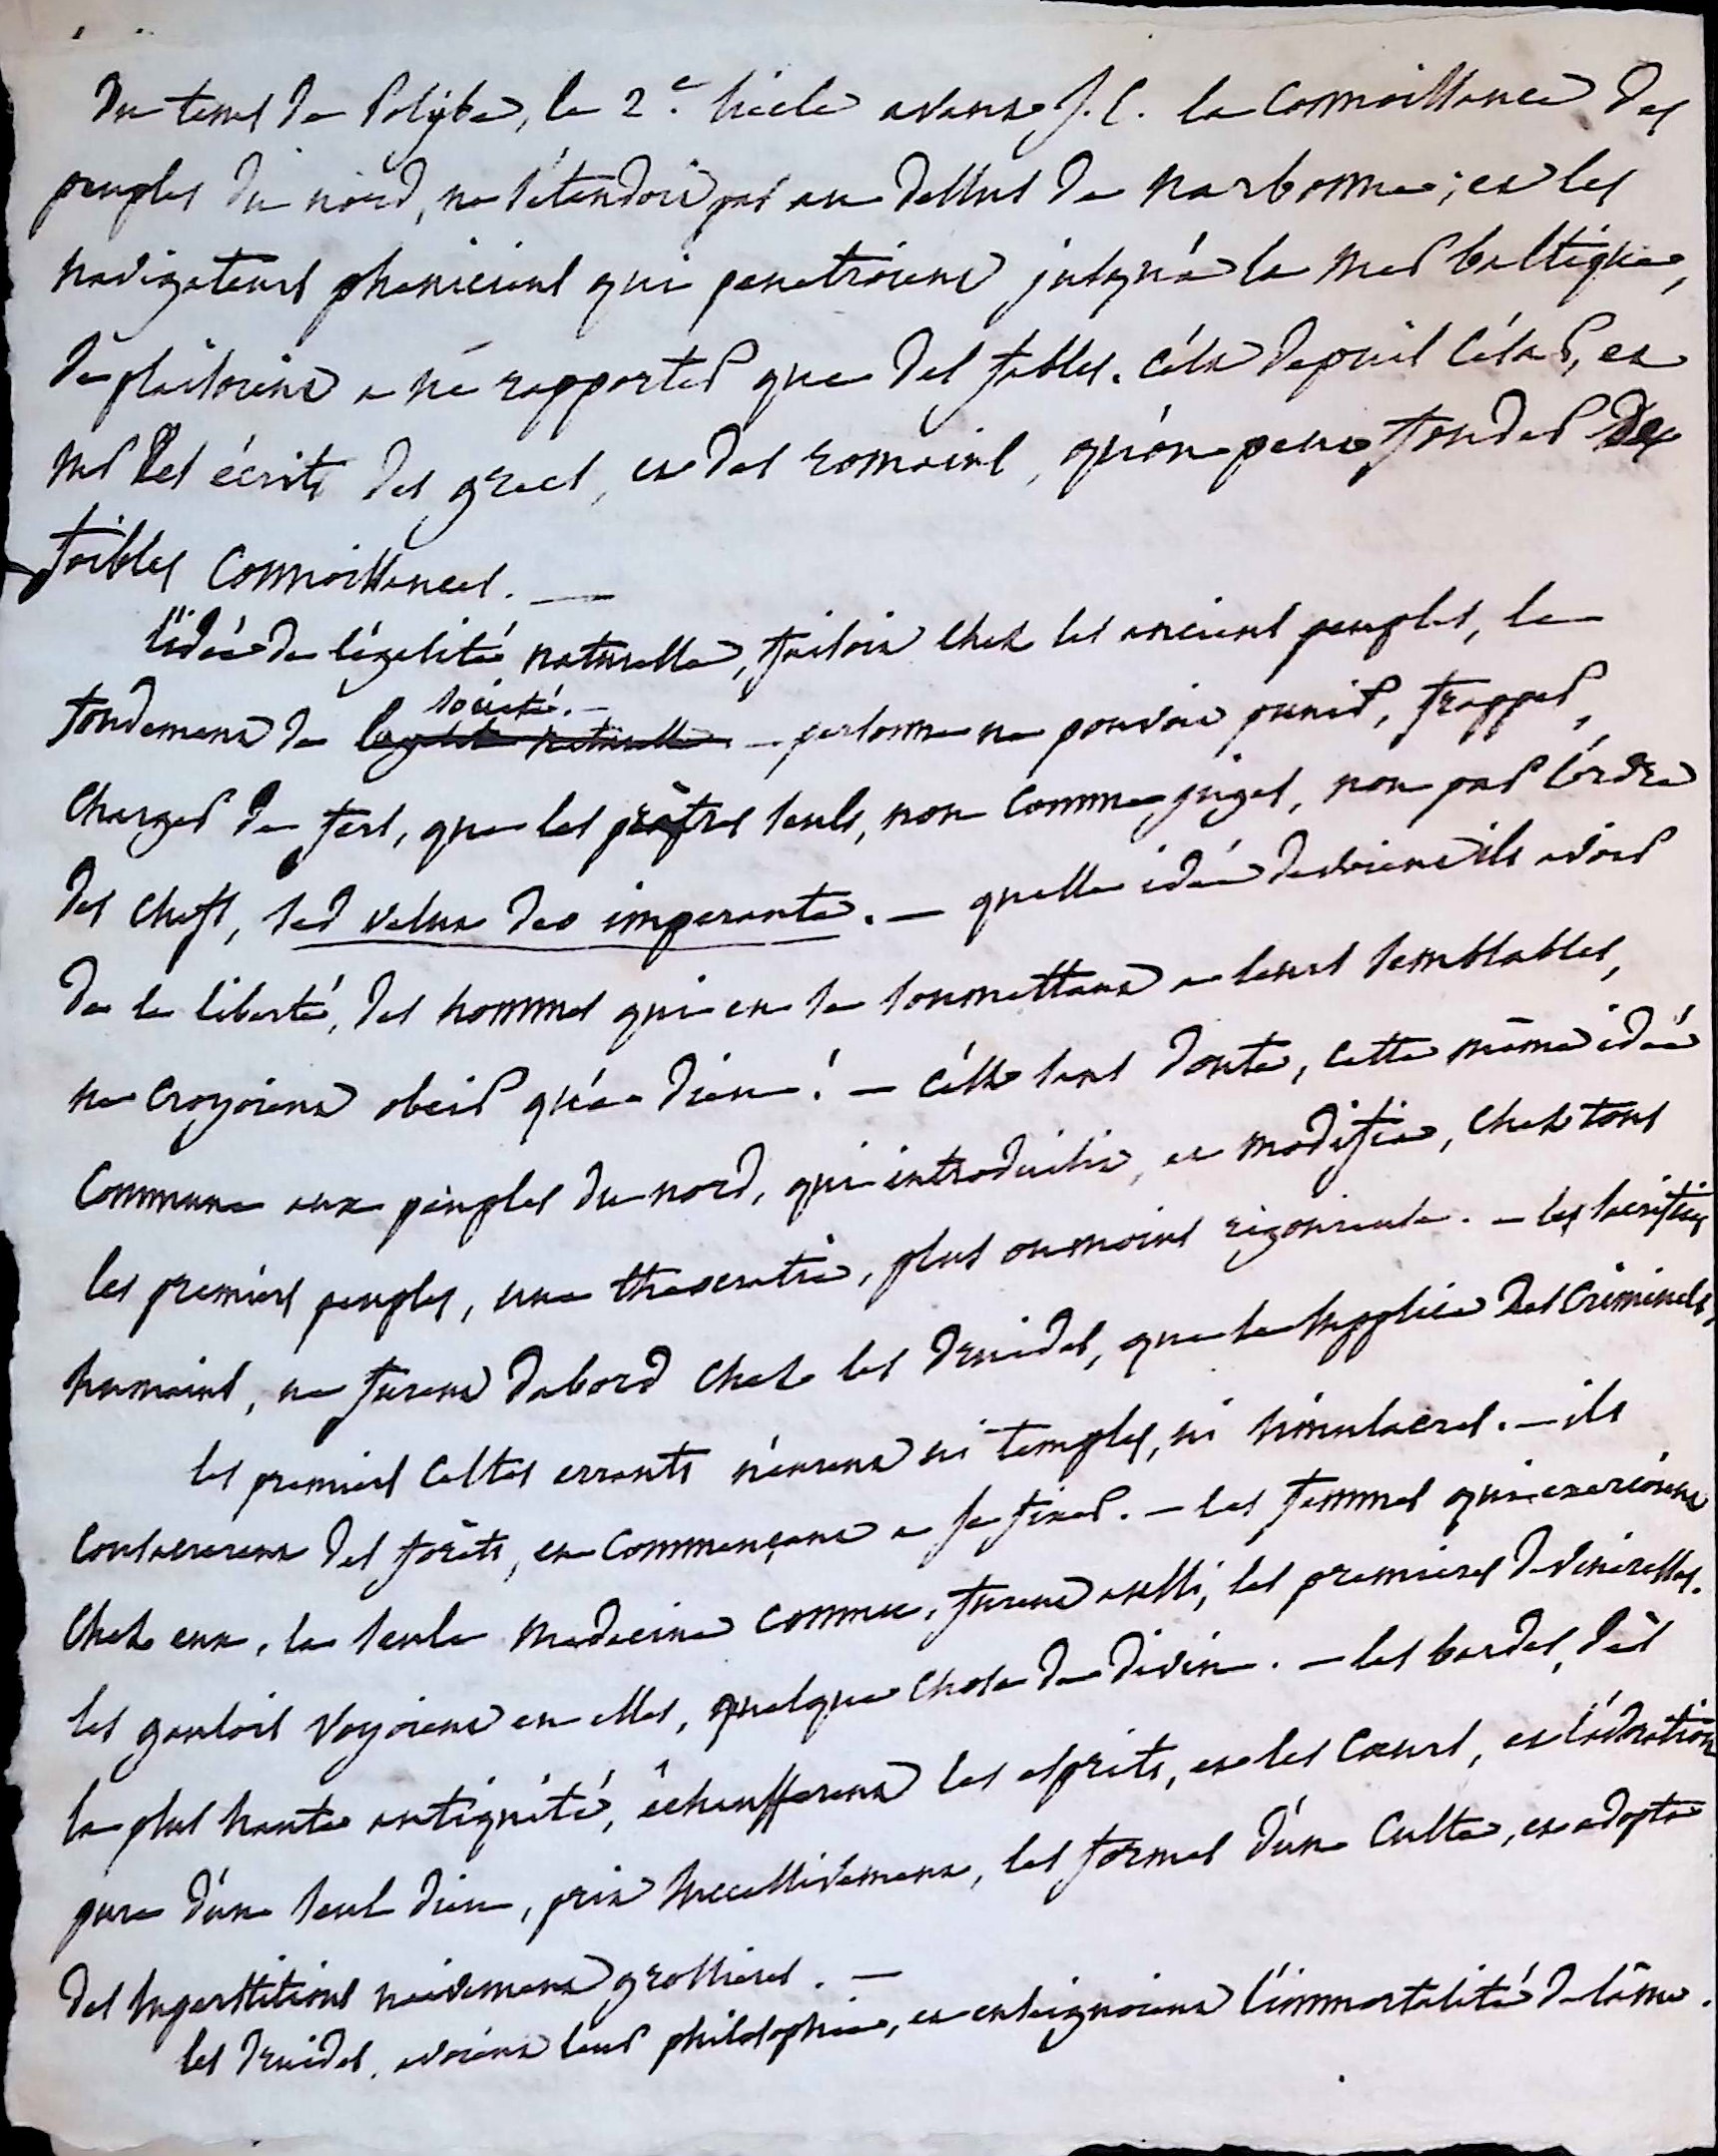 Du tems de Polybe, le 2.e siècle avant J.C. la connoissance des
peuples du nord, ne s'étendoit pas au dessus de narbonne; et les
navigateurs phéniciens qui penetroient jusqu'à la mer baltique,
se plaisoient a ne rapporter que des fables. c'est depuis César, et
sur les écrits des grecs, et des romains, qu'on peut fonder des
foibles connoissances. —
l'idée de l'égalité naturelle, faisoit chez les anciens peuples, le
fondement de la société. — personne ne pouvoit punir, frapper,
charger de fers, que les prêtres seuls, non comme juges, non par l'ordre
des chefs, sed velut deo imperante. — quelle idée devoient ils avoir
de la liberté, des hommes qui en se soumettant a leurs semblables,
ne croyoient obeir qu'a dieu! — c'est sans doute, cette même idée
commune aux peuples du nord, qui introduisit, et modifia, chez tous
les premiers peuples, une theocratie, plus ou moins rigoureuse. — les sacrifices
humains, ne furent d'abord chez les druides, que le supplice des criminels,
les premiers celtes errants n'eurent ni temples, ni simulacres. — ils
consacrerent des forêts, en commençant a se fixer. — les femmes qui exercoient
chez eux, la seule medecine connue, furent aussi, les premieres devineresses.
les gaulois voyoient en elles, quelque chose de divin. — les bardes, dès
la plus haute antiquité, échaufferent les esprits, et les cœurs, et l'adoration
pure d'un seul dieu, prit successivement, les formes d'un culte, et adopta
des superstitions naivement grossieres. —
les druides, avoient leur philosophie, et enseignoient l'immortalité de l'âme.